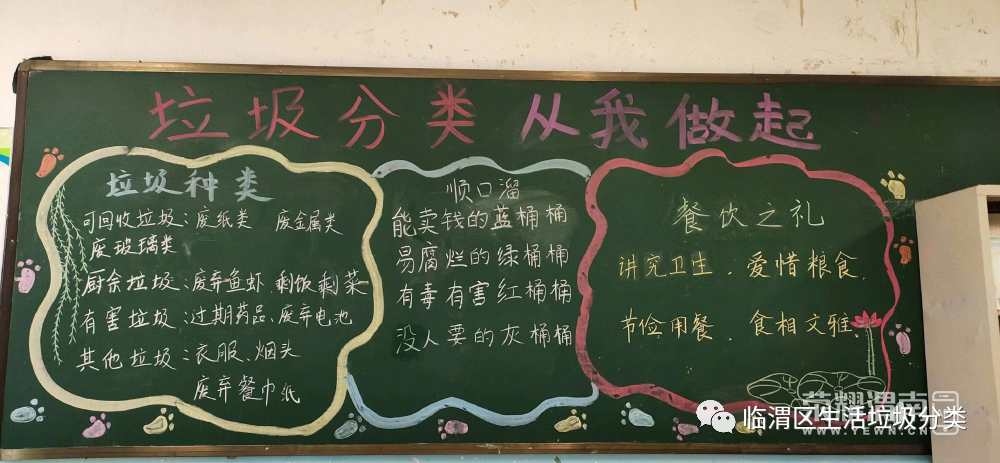 垃圾分类 从我做起
垃圾种类
可回收垃圾：废纸类 废金属类
废玻璃类
厨余垃圾：废弃鱼虾、剩饭剩菜
有害垃圾：过期药品、废弃电池
其他垃圾：衣服、烟头
废弃餐巾纸
顺口溜
能卖钱的蓝桶桶
易腐烂的绿桶桶
有毒有害红桶桶
没人要的灰桶桶
餐饮之礼
讲究卫生．爱惜粮食．
节俭用餐、食相文雅．
荣耀渭南网
WWW.YEWN.CN
临渭区生活垃圾分类